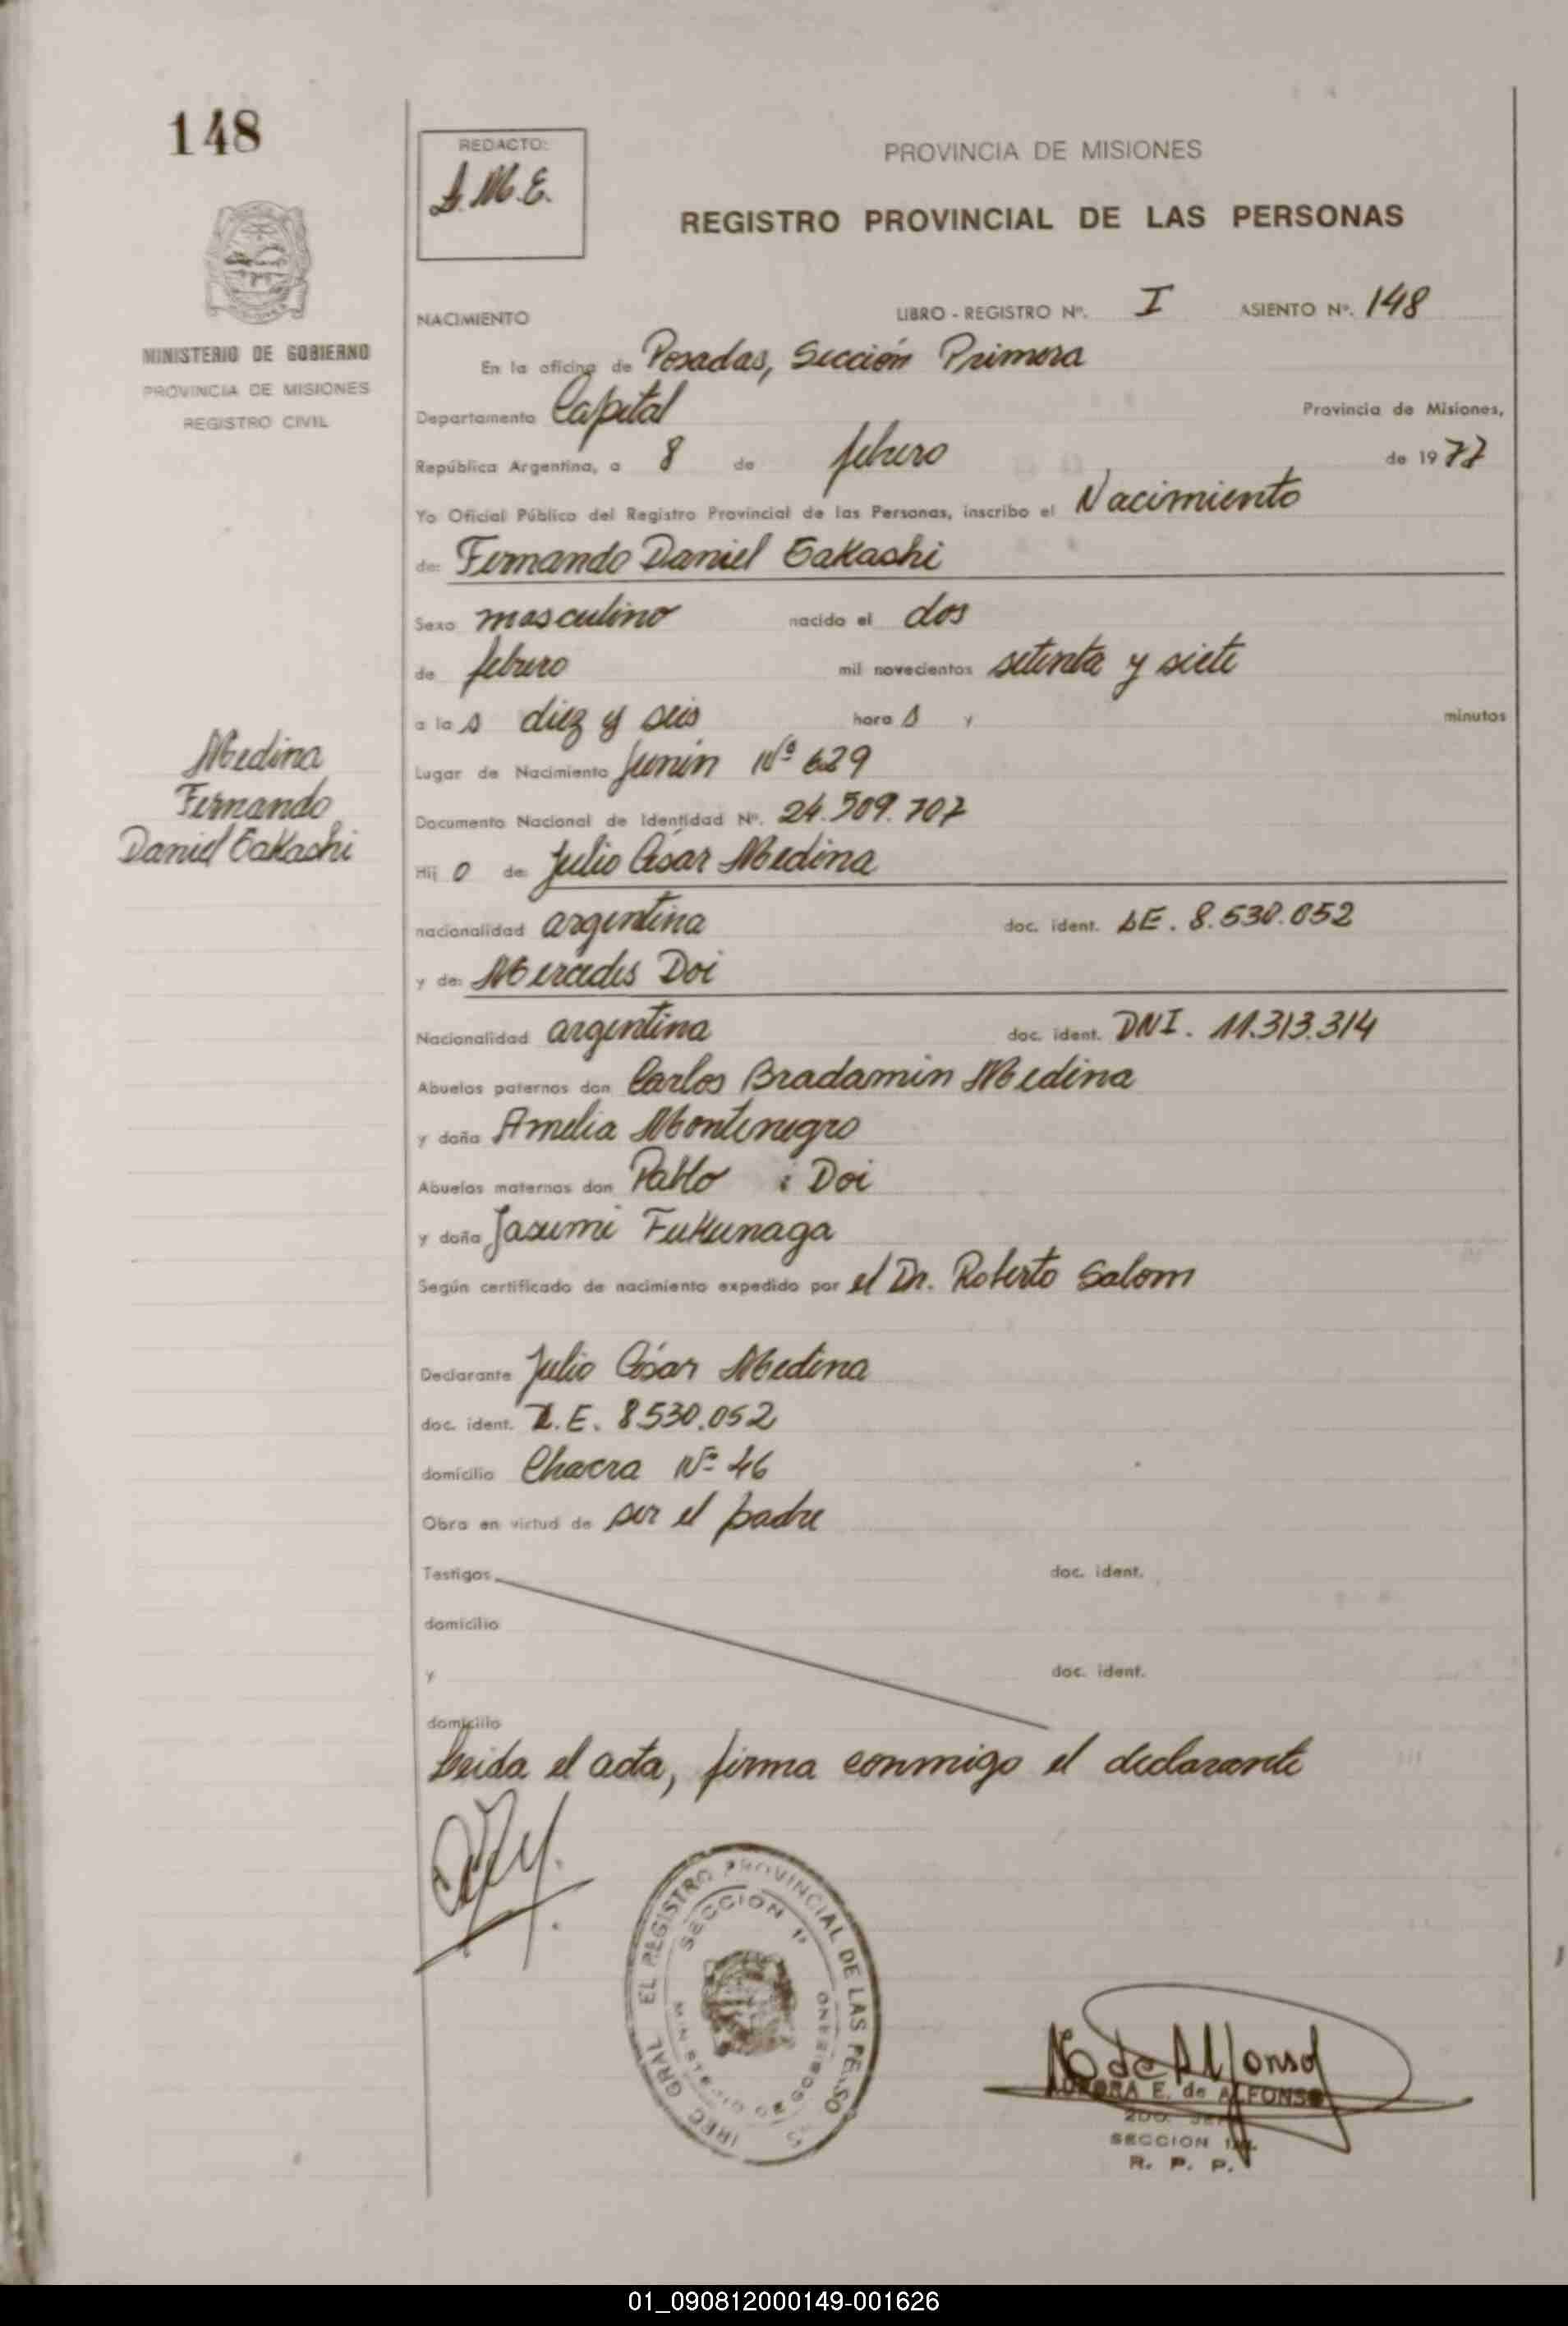 148
REDACTO:
L.M.E.
PROVINCIA DE MISIONES
REGISTRO PROVINCIAL DE LAS PERSONAS
MINISTERIO DE GOBIERNO
PROVINCIA DE MISIONES
REGISTRO CIVIL
NACIMIENTO LIBRO - REGISTRO Nº. I ASIENTO Nº. 148
En la oficina de Posadas, Sección Primera
Departamento Capital Provincia de Misiones,
República Argentina, a 8 de febrero de 1977
Yo Oficial Público del Registro Provincial de las Personas, inscribo el Nacimiento
de: Fernando Daniel Takashi
Sexo masculino nacido el dos
de febrero mil novecientos setenta y siete
a las diez y seis horas y minutos
Lugar de Nacimiento Junín Nº 629
Documento Nacional de Identidad Nº. 24.509.707
Medina
Fernando
Daniel Takashi
Hijo de: Julio César Medina
nacionalidad argentina doc. ident. LE. 8.530.052
y de: Mercedes Doi
Nacionalidad argentina doc. ident. DNI. 11.313.314
Abuelos paternos don Carlos Bradamin Medina
y doña Amelia Montenegro
Abuelos maternos don Pablo Doi
y doña Jasumi Fukunaga
Según certificado de nacimiento expedido por el Dr. Roberto Salom
Declarante Julio César Medina
doc. ident. L.E. 8530.052
domicilio Chacra Nº 46
Obra en virtud de ser el padre
Testigos doc. ident.
domicilio
y doc. ident.
domicilio
Leida el acta, firma conmigo el declarante
EL REGISTRO PROVINCIAL DE LAS PE
SECCION 1ª
GRAL
de Alfonso
AURORA E. de ALFONSO
2DO.
SECCION
R. P. P.
01_090812000149-001626